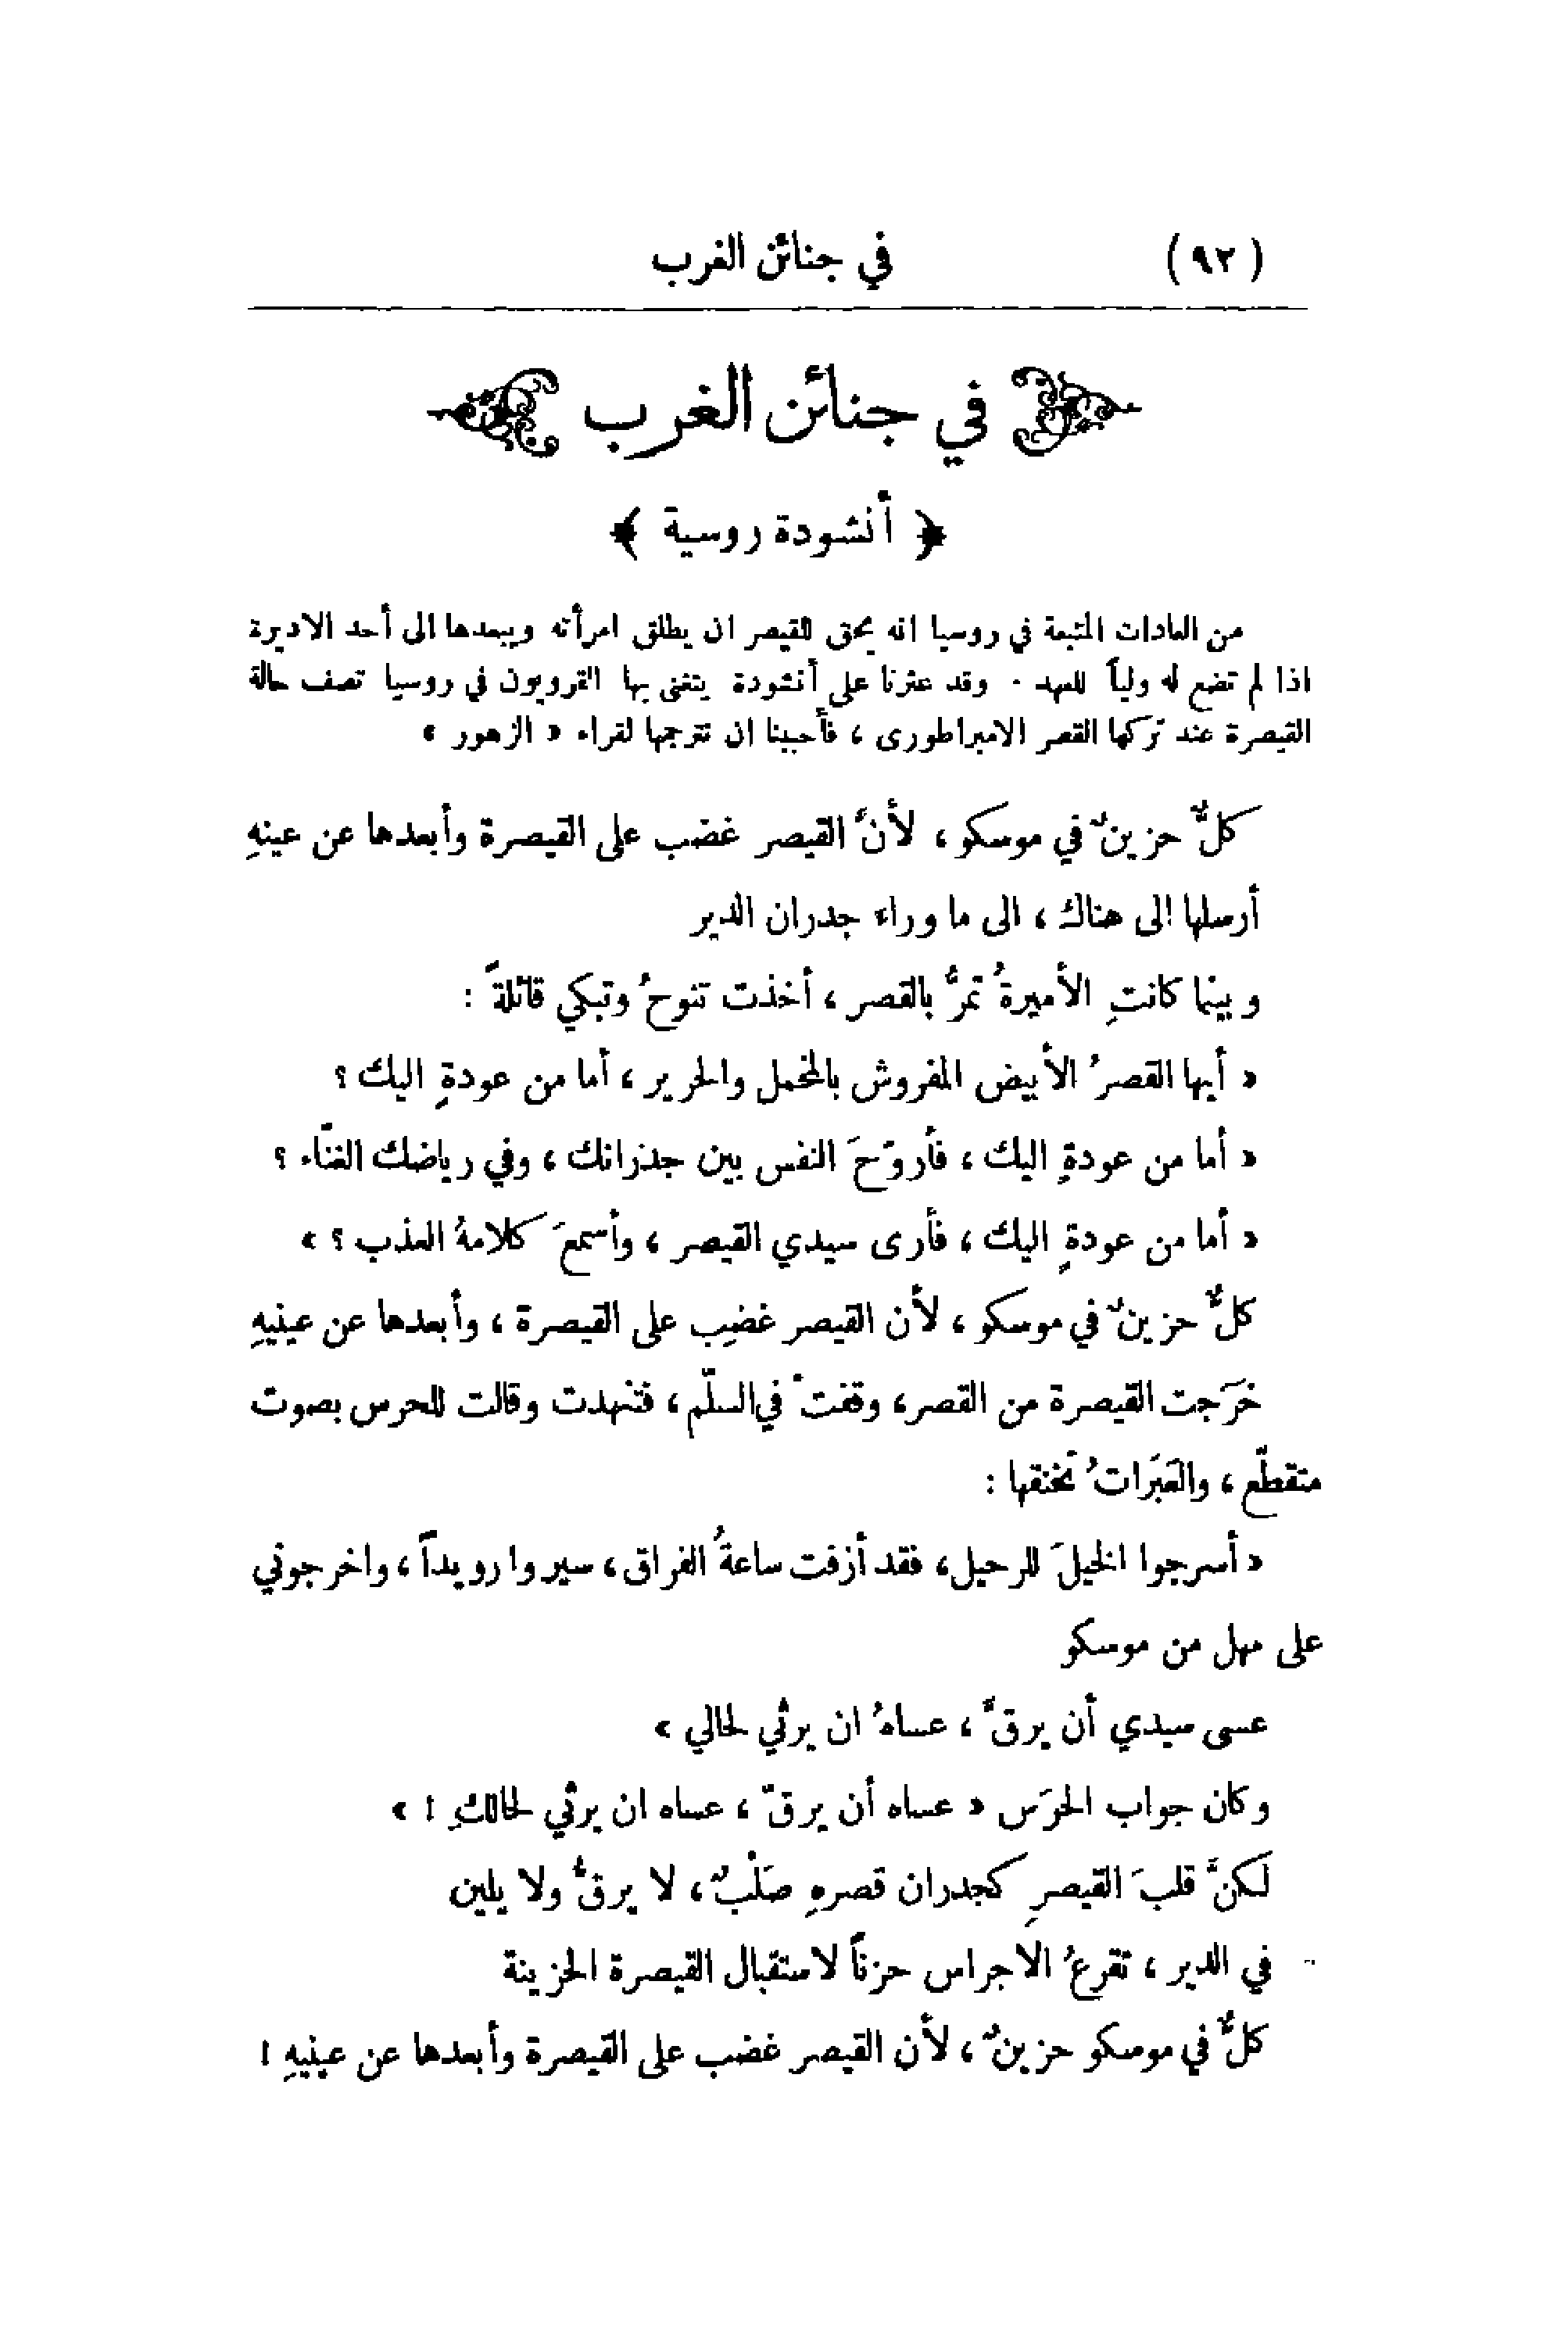 (٩٢) في جنائن الغرب
في جنائن الغرب
﴿ أنشودة روسية ﴾
من العادات المتبعة في روسيا انه يحق للقيصر ان يطلق امرأته ويبعدها الى أحد الاديرة
اذا لم تضع له ولياً للعهد . وقد عثرنا على أنشودة يتغنى بها القرويون في روسيا تصف حالة
القيصرة عند تركها القصر الامبراطورى ، فأحببنا ان نترجمها لقراء « الزهور »
كلٌّ حزينٌ في موسكو ، لأنَّ القيصر غضب على القيصرة وأبعدها عن عينهِ
أرسلها الى هناك ، الى ما وراء جدران الدير
وبينما كانتِ الأميرةُ تمرُّ بالقصر ، أخذت تنوحُ وتبكي قائلةً :
« أيها القصرُ الأبيض المفروش بالمخمل والحرير ، أما من عودةٍ اليك ؟
« أما من عودةٍ اليك ، فأروّحَ النفس بين جدرانك ، وفي رياضك الغنّاء ؟
« أما من عودةٍ اليك ، فأرى سيدي القيصر ، وأسمعَ كلامهُ العذب ؟ »
كلٌّ حزينٌ في موسكو ، لأن القيصر غضِب على القيصرة ، وأبعدها عن عينيهِ
خرَجت القيصرة من القصر ، وقفتْ في السلّم ، فتنهدت وقالت للحرس بصوت
متقطّع ، والعَبَراتُ تخنقها :
« أسرجوا الخيلَ للرحيل ، فقد أزفت ساعةُ الفراق ، سيروا رويداً ، واخرجوني
على مهل من موسكو
عسى سيدي أن يرقَّ ، عساهُ ان يرثي لحالي »
وكان جواب الحرَس « عساه أن يرقّ ، عساه ان يرثي لحالكِ ! »
لكنَّ قلبَ القيصرِ كجدران قصرهِ صَلْبٌ ، لا يرقُّ ولا يلين
في الدير ، تقرعُ الاجراس حزناً لاستقبال القيصرة الحزينة
كلٌّ في موسكو حزينٌ ، لأن القيصر غضب على القيصرة وأبعدها عن عينيهِ !